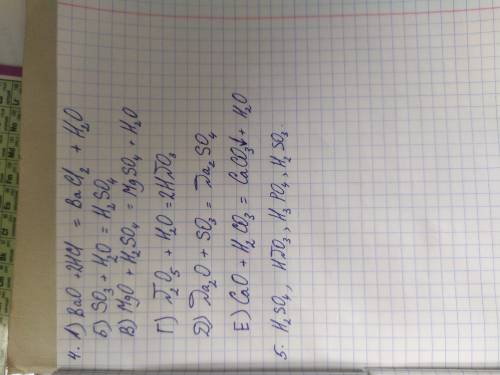 4. А) BaO + 2HCl = BaCl₂ + H₂O
Б) SO₃ + H₂O = H₂SO₄
В) MgO + H₂SO₄ = MgSO₄ + H₂O
Г) N₂O₅ + H₂O = 2HNO₃
Д) Na₂O + SO₃ = Na₂SO₄
Е) CaO + H₂CO₃ = CaCO₃↓ + H₂O
5. H₂SO₄, HNO₃, H₃PO₄, H₂SO₃.